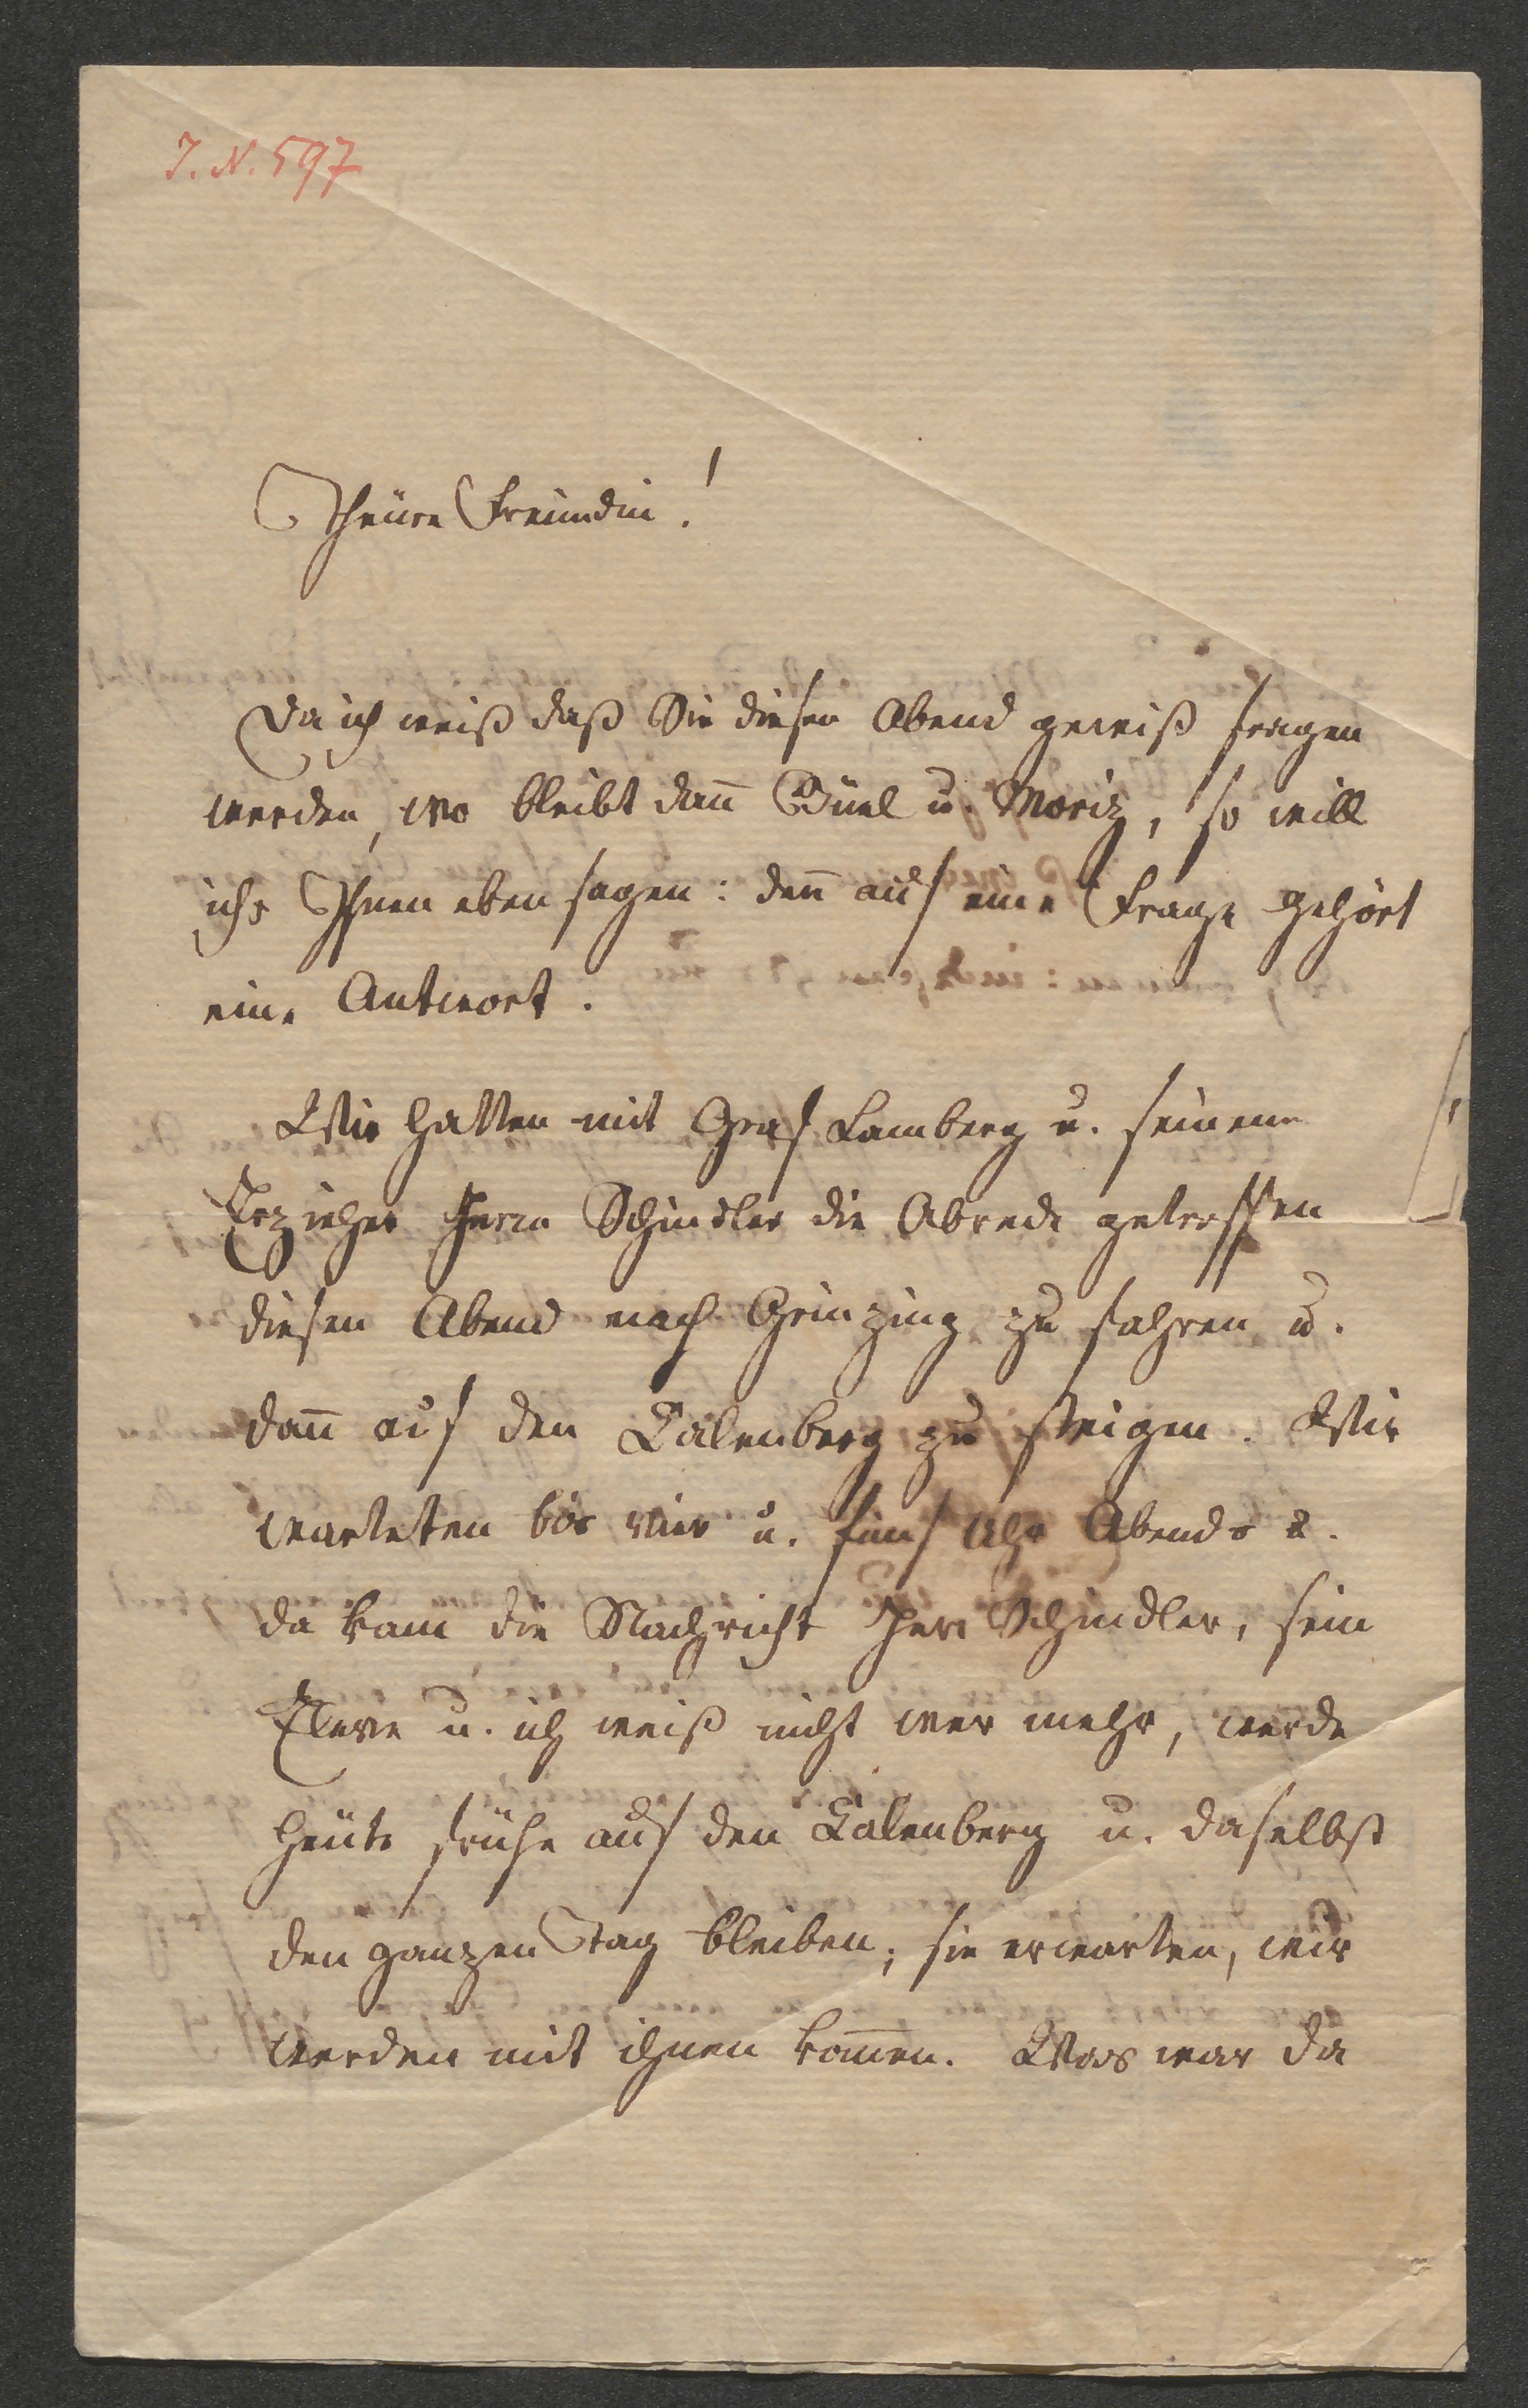 J. N. 597
Theüre Freündin!
Da ich weiß daß Sie diesen Abend gewiß fragen
werden, wo bleibt dañ Büel u. Moriz, so will
ichs Ihnen eben sagen: deñ auf eine Frage gehört
eine Antwort.
Wir hatten mit Graf Lamberg u. seinem
Erzieher Herrn Schindler die Abrede getroffen
diesen Abend nach Grinzing zu fahren u.
dañ auf den Calenberg zu steigen. Wir
warteten bis vier u. fünf Uhr Abends u.
da kam die Nachricht Herr Schindler, sein
Eleve u. ich weiß nicht wer mehr, werde
heüte frühe auf den Calenberg u. daselbst
den ganzen Tag bleiben; sie erwarten, wir
werden mit ihnen kom̃en. Was war da